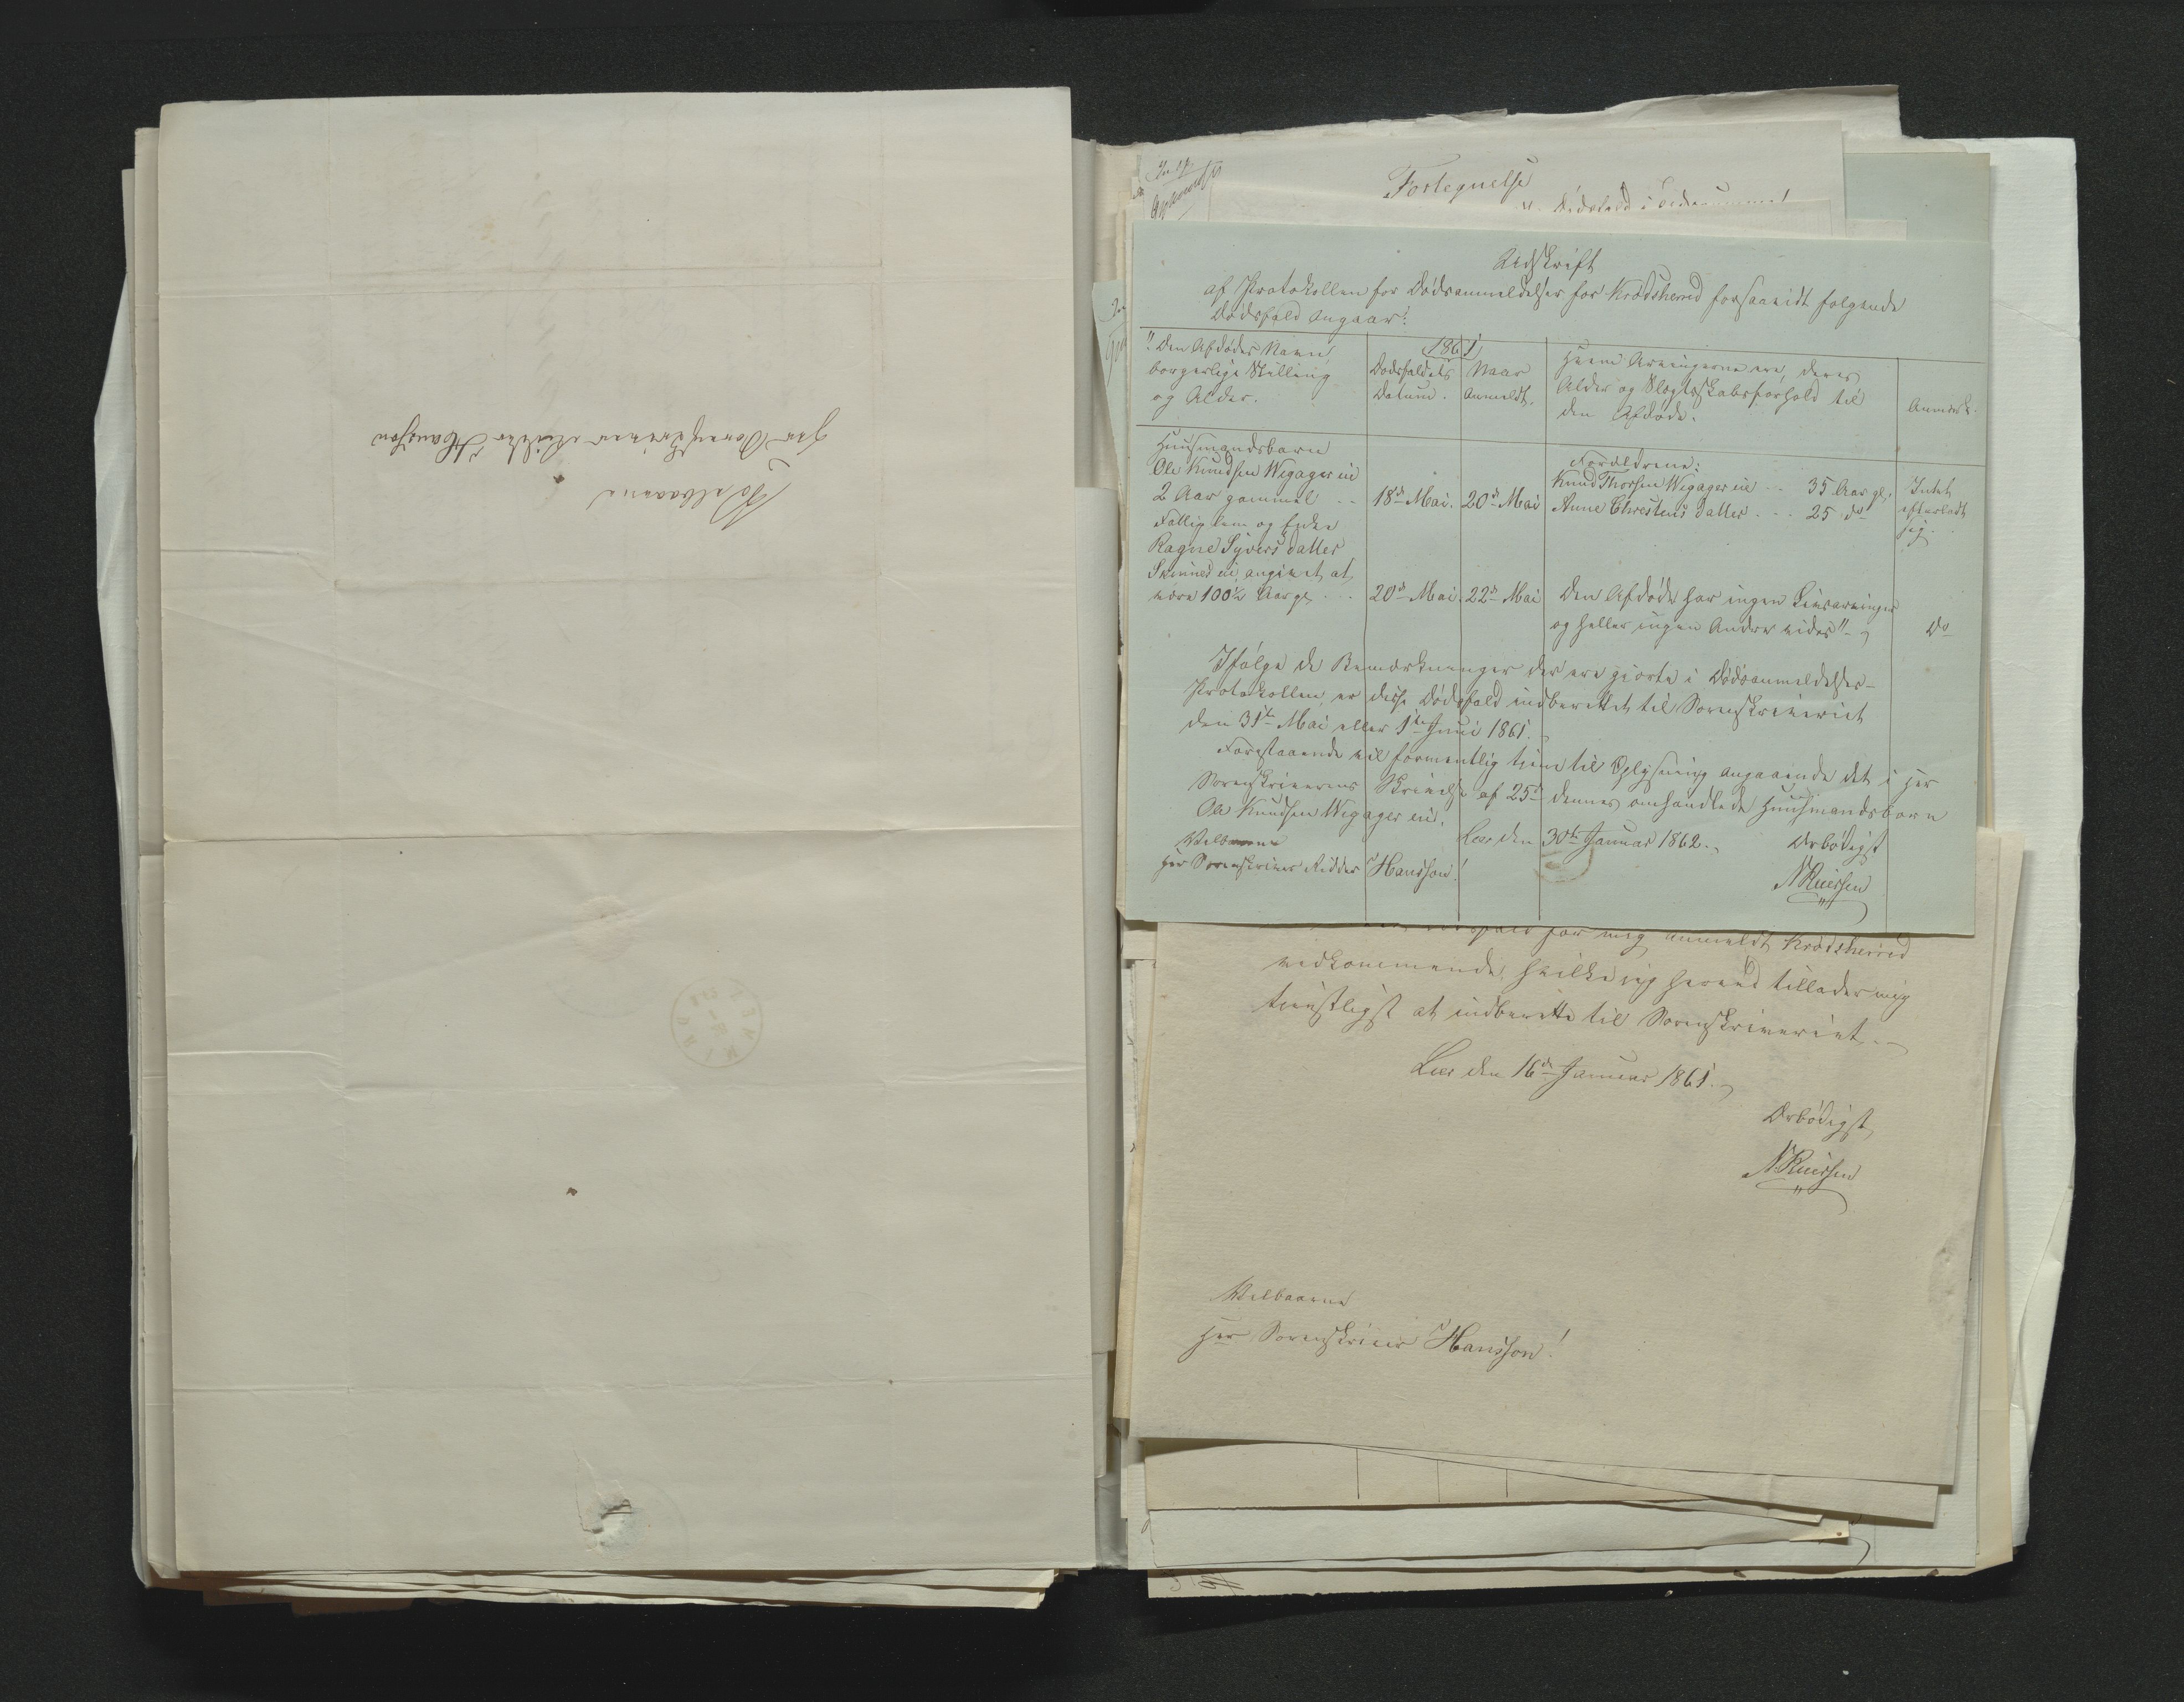 Velbaarne
Herr Sorenskriver Ridder Hansson
DRAMMEN
Fortegnelse
Dødsfald i
Udskrift
af Protokollen for Dødsanmeldelser for Krødsherred forsaavidt følgende
Dødsfald angaar:
1861
"Den Afdødes Navn,
borgerlige Stilling
og Alder.
Dødsfaldets
Datum.
Naar
Anmeldt.
Hvem Arvingerne ere, deres
Alder og Slægtskabsforhold til
den Afdøde.
Anmærk.
Huusmandsbarn
Ole Knudsen Wegager eie
2 Aar gammel - -
18de Mai.
20de Mai
Forældrene:
Knud Thorsen Wegager eie - - 35 Aar gl.
Anne Christens datter - - - 25 do
Intet
efterladt
sig.
Fattiglem og Enke
Ragne Syvers datter
eie, angivet at
være 100½ Aar gl. - - -
20de Mai.
22de Mai
Den Afdøde har ingen Livsarvinger
og heller ingen Andre vides"-
Do
Ifølge de Bemærkninger der ere gjorte i Dødsanmeldelses-
Protokollen, er disse Dødsfald indberettet til Sorenskriveriet
den 31te Mai eller 1ste Juni 1861.
Forestaaende vil formentlig tjene til Oplysning angaaende det i Hr
Sorenskriverens Skrivelse af 25de dennes omhandlede Huusmandsbarn
Ole Knudsen Wegager eie.
Lees den 30te Januar 1862.
Ærbødigst
Velbaarne
Hr Sorenskriver Ridder Hansson!
for mig anmeldt Krødsherred
vedkommende, hvilket jeg herved tillader mig
tjenstligst at indberette til Sorenskriveriet.
Lees den 16de Januar 1861.
Ærbødigst
Velbaarne
Hr Sorenskriver Hansson!